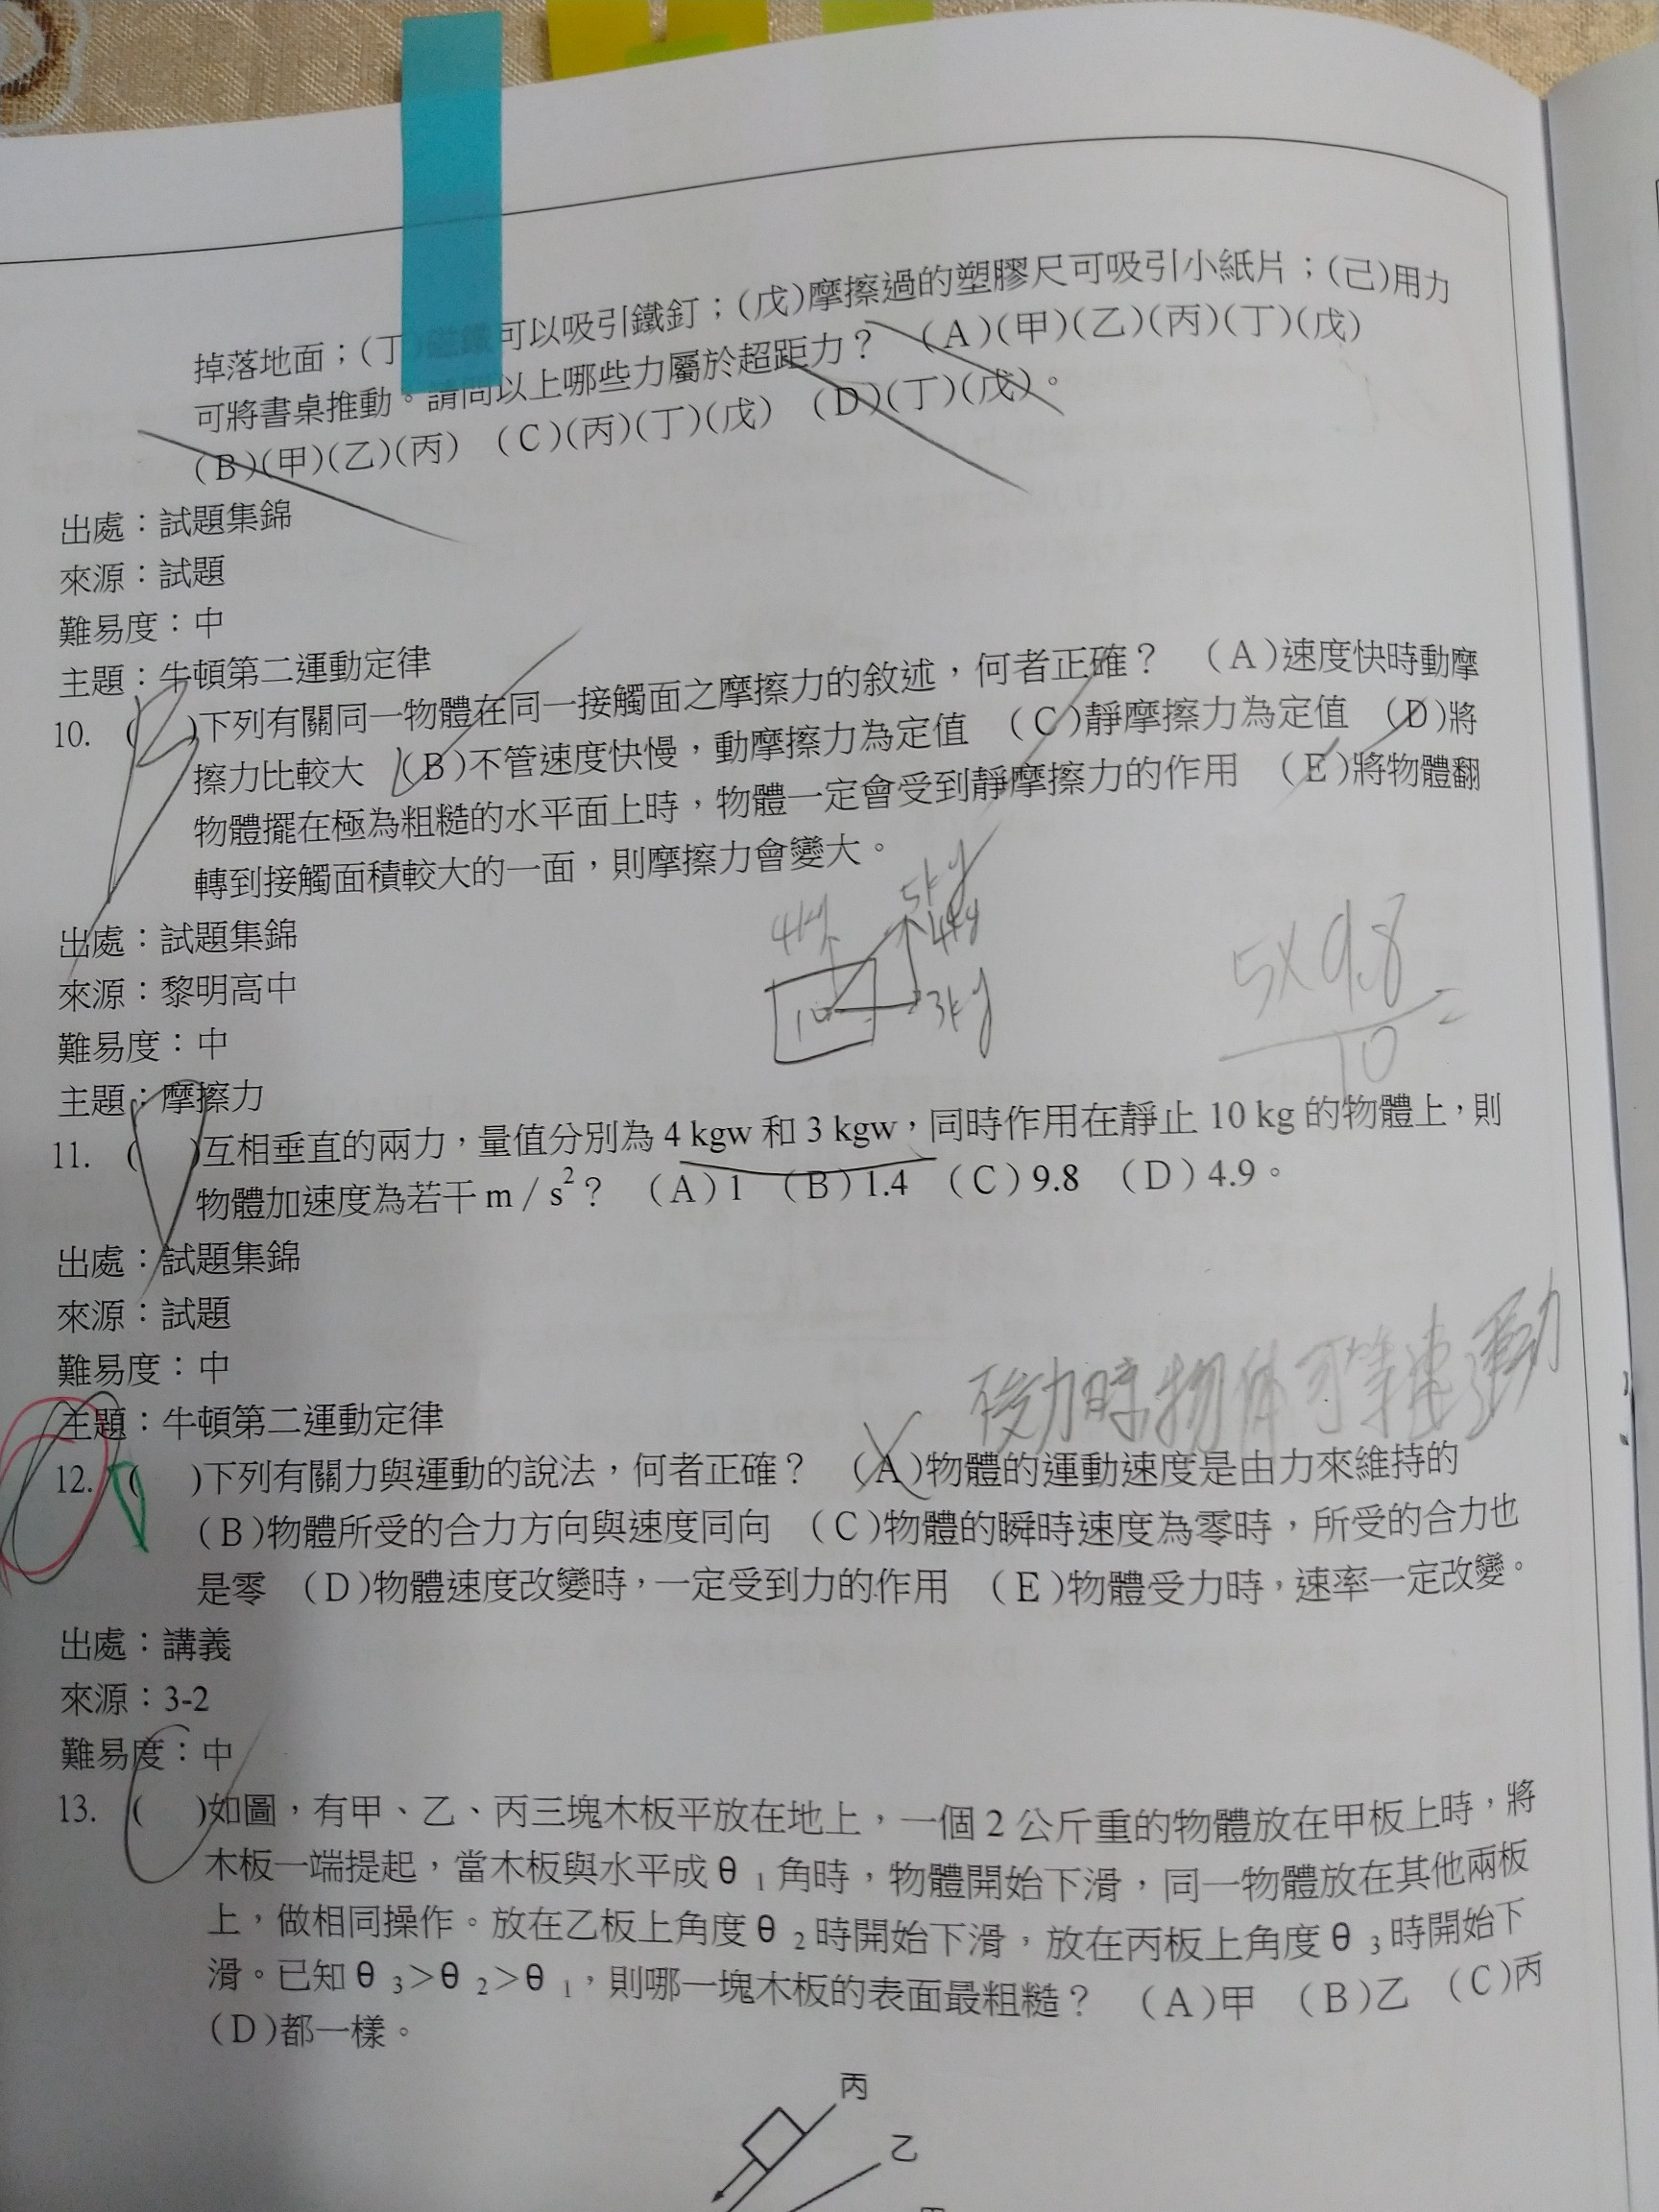 掉落地面；(丁)磁鐵可以吸引鐵釘；(戊)摩擦過的塑膠尺可吸引小紙片；(己)用力
可將書桌推動。請問以上哪些力屬於超距力？　(A)(甲)(乙)(丙)(丁)(戊)
(B)(甲)(乙)(丙)　(C)(丙)(丁)(戊)　(D)(丁)(戊)。
出處：試題集錦
來源：試題
難易度：中
主題：牛頓第二運動定律
10. (　)下列有關同一物體在同一接觸面之摩擦力的敘述，何者正確？　(A)速度快時動摩
擦力比較大　(B)不管速度快慢，動摩擦力為定值　(C)靜摩擦力為定值　(D)將
物體擺在極為粗糙的水平面上時，物體一定會受到靜摩擦力的作用　(E)將物體翻
轉到接觸面積較大的一面，則摩擦力會變大。
出處：試題集錦
來源：黎明高中
難易度：中
主題：摩擦力
4kg
5kg
4kg
10
3kg
5×9.8
10
=
11. (　)互相垂直的兩力，量值分別為 4 kgw 和 3 kgw，同時作用在靜止 10 kg 的物體上，則
物體加速度為若干 m / s²？　(A) 1　(B) 1.4　(C) 9.8　(D) 4.9。
出處：試題集錦
來源：試題
難易度：中
主題：牛頓第二運動定律
力時物体可等速運動
12. (　)下列有關力與運動的說法，何者正確？　(A)物體的運動速度是由力來維持的
(B)物體所受的合力方向與速度同向　(C)物體的瞬時速度為零時，所受的合力也
是零　(D)物體速度改變時，一定受到力的作用　(E)物體受力時，速率一定改變。
出處：講義
來源：3-2
難易度：中
13. (　)如圖，有甲、乙、丙三塊木板平放在地上，一個 2 公斤重的物體放在甲板上時，將
木板一端提起，當木板與水平成θ₁角時，物體開始下滑，同一物體放在其他兩板
上，做相同操作。放在乙板上角度θ₂時開始下滑，放在丙板上角度θ₃時開始下
滑。已知θ₃＞θ₂＞θ₁，則哪一塊木板的表面最粗糙？　(A)甲　(B)乙　(C)丙
(D)都一樣。
丙
乙